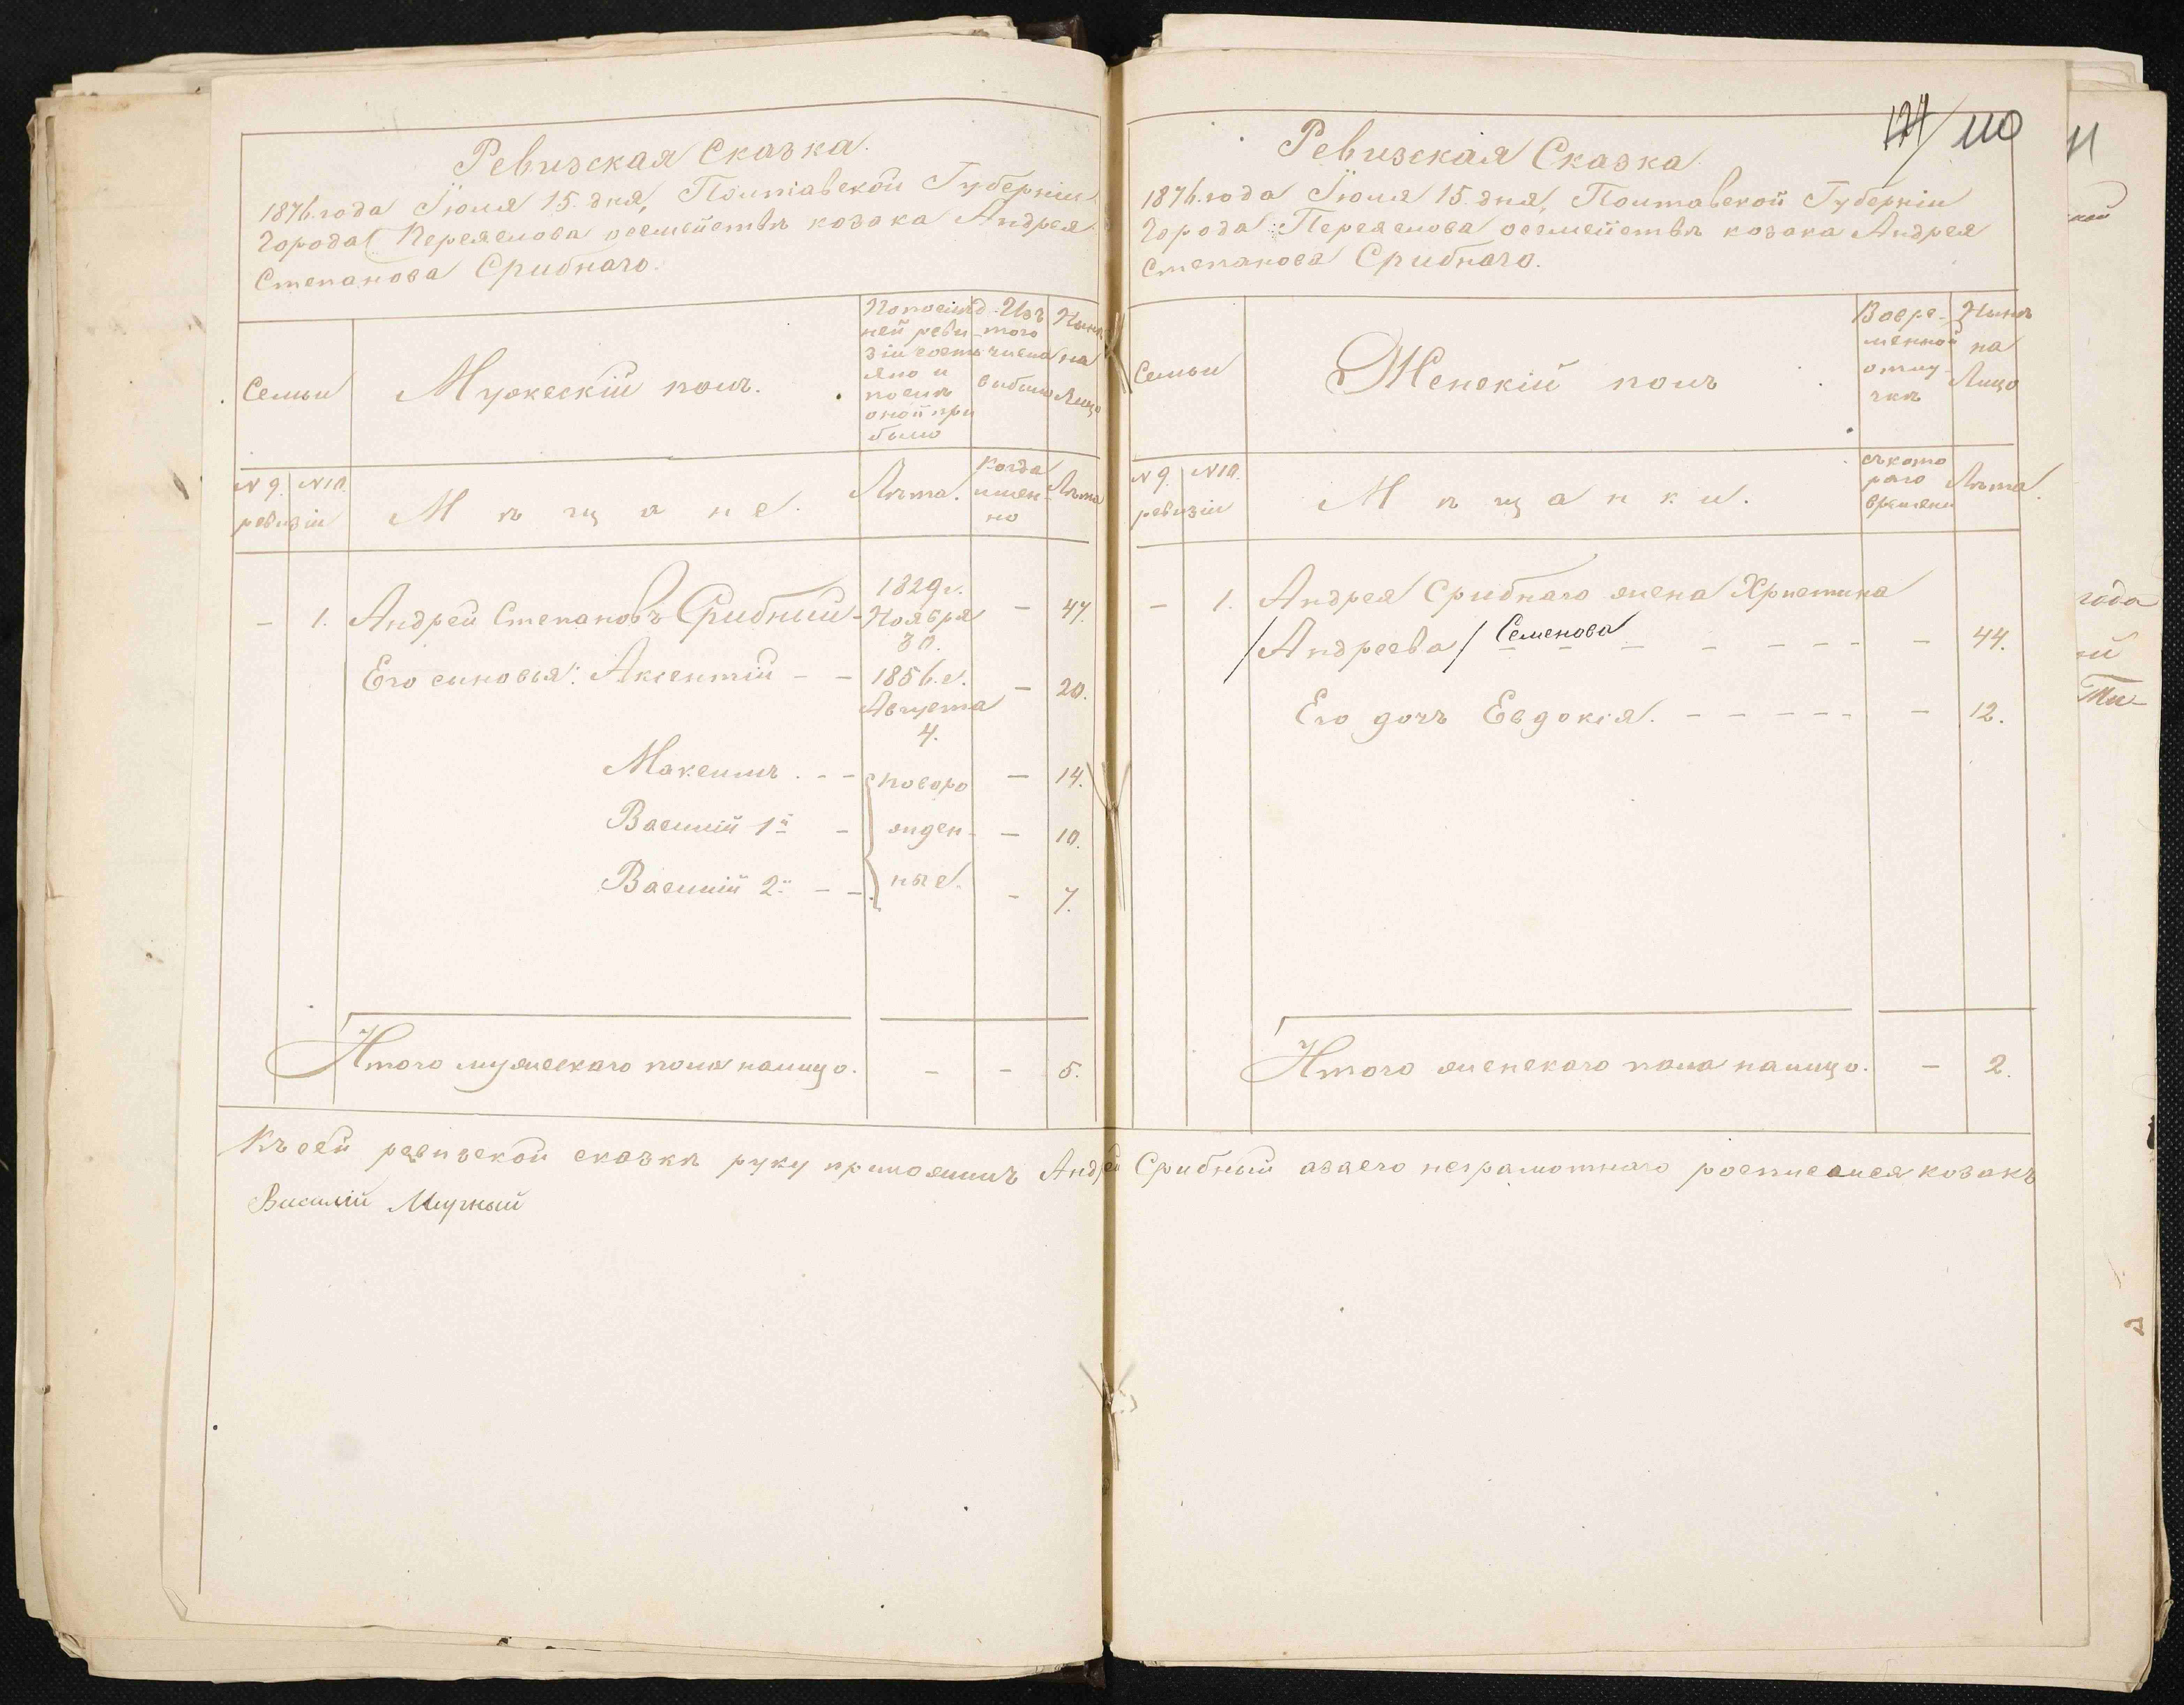 Ревизская Сказка.
1876. года Iюля 15. дня, Полтавской Губернiи
города Переяслова осемействѣ козака Андрея
Степанова Срибнаго.
Семьи
Мужескiй полъ.
Попослѣд
ней реви
зiи состо
яло и
послѣ
оной при
было
Изъ
того
числа
выбыло
Нынѣ
на
Лицо
№ 9. №10.
ревизiи
Мѣщане.
Лѣта.
Когда
имен-
но
Лѣта
— 1. Андрей Степановъ Срибный - 1829 г. Ноября 30. — 47.
Его сыновья: Аксентiй - - 1856. г. Августа 4. — 20.
Максимъ . - - новоро — 14.
Василiй 1й - жден- — 10.
Василiй 2й - - ные. - 7.
Итого мужескаго пола налицо. - - 5.
124/110
Ревизская Сказка.
1876. года Iюля 15. дня, Полтавской Губернiи
города Переяслова осемействѣ козака Андрея
Степанова Срибнаго.
Семьи
Женскiй полъ
Вовре-
менной
отлу-
чкѣ
Нынѣ
на
Лицо
№ 9. №10.
ревизiи
Мѣщанки.
съкото
раго
времени
Лѣта.
— 1. Андрея Срибнаго жена Христина
/Андреева/ Семенова - - - - - - — 44.
Его дочь Евдокiя. - - - - - — 12.
Итого женскаго пола налицо. — 2.
Къ сей ревизской сказкѣ руку приложилъ Андрей Срибный азаего неграмотнаго росписался козакъ
Василiй Мирный
11
года
ий
Ти-